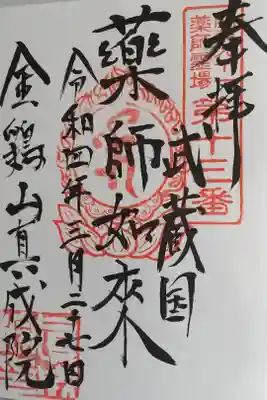 奉拝
武蔵国
第十三番
薬師霊場
藥師如來
令和四年三月二十七日
金鶏山真成院